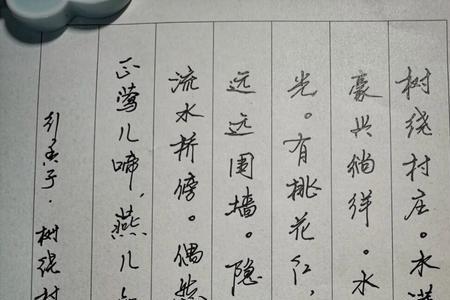 树绕村庄。水满
豪兴徜徉。水
光。有桃花红，
远远围墙。隐
流水桥傍。偶然
正莺儿啼，燕儿
行香子·树绕村